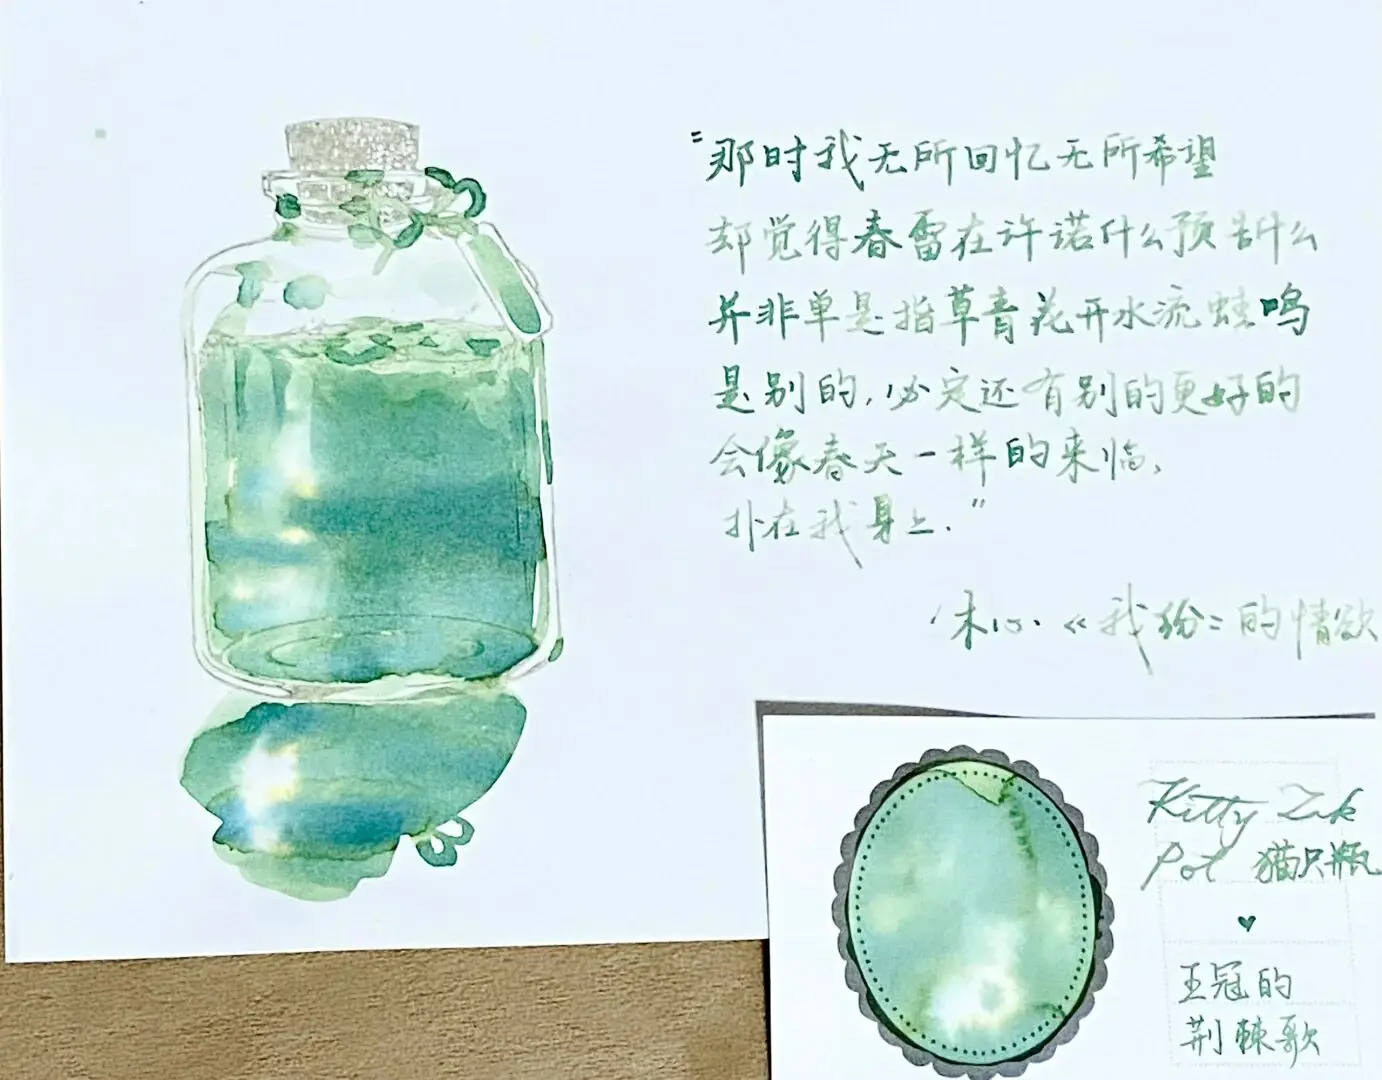 "那时我无所回忆无所希望
却觉得春雷在许诺什么预告什么
并非单是指草青花开水流蛙鸣
是别的,必定还有别的更好的
会像春天一样的来临,
扑在我身上."
木心·《我纷纷的情欲
Kitty Ink
Pot 猫只瓶
王冠的
荆棘歌